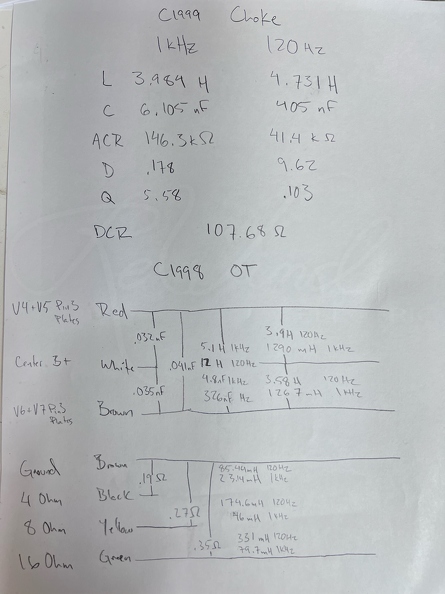 C1999 Choke
1kHz 120Hz
L 3.984 H 4.731H
C 6.105 nF 405 nF
ACR 146.3kΩ 41.4 kΩ
D .178 9.62
Q 5.58 .103
DCR 107.68 Ω
C1998 OT
V4+V5 Pin3 Red
Plates
.032nF 5.1H 1kHz 3.9H 120Hz
1290 mH 1kHz
Center White .041nF 12H 120Hz
4.8nF 1kHz 3.58H 120Hz
.035nF 326nF Hz 1267mH 1kHz
V6+V7Pin3 Brown
Plates
Ground Brown 85.44mH 120Hz
.19Ω 23.4mH 1kHz
4 Ohm Black 174.6mH 120Hz
46mH 1kHz
8 Ohm Yellow .27Ω
.35Ω 331mH 120Hz
79.7mH 1kHz
16 Ohm Green